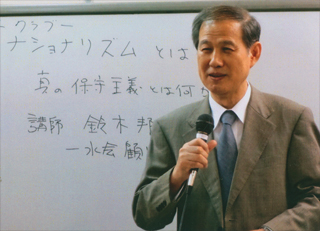 ークラブー
ナショナリズム とは
真の 保守主義とは何
講師 鈴木邦
一水会 顧